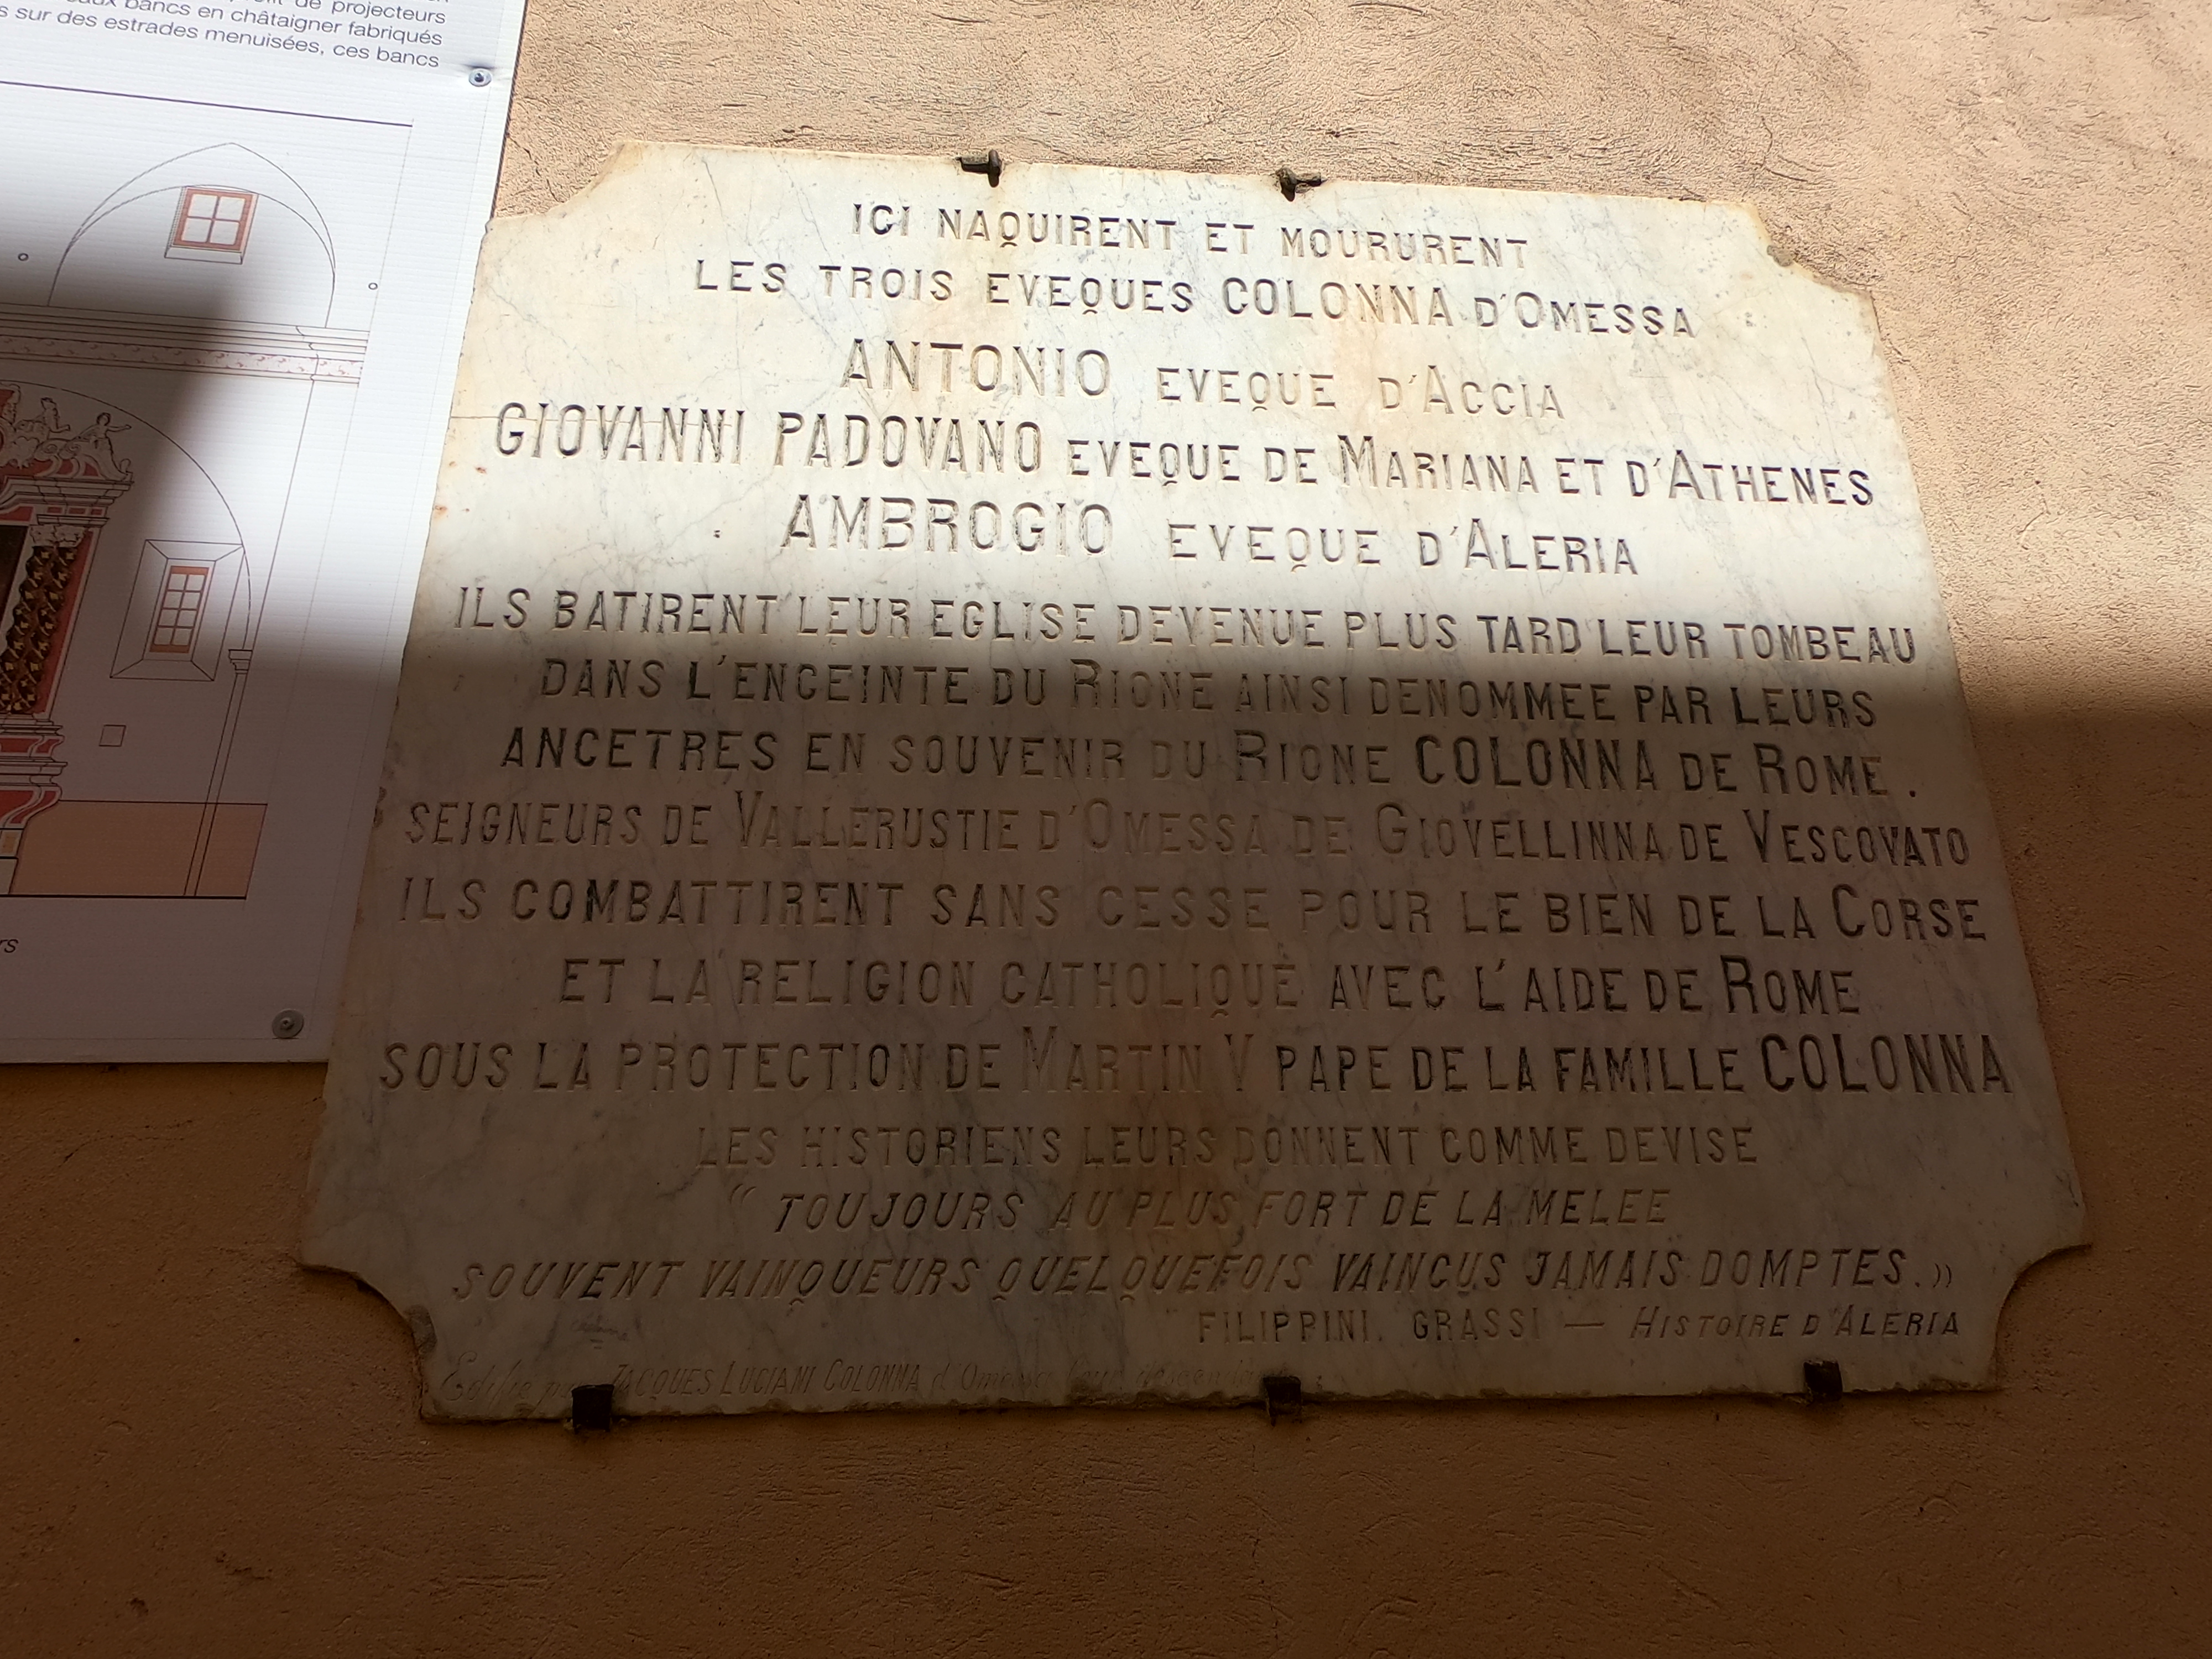 de projecteurs
bancs en châtaigner fabriqués
sur des estrades menuisées, ces bancs
ICI NAQUIRENT ET MOURURENT
LES TROIS EVEQUES COLONNA D'OMESSA
ANTONIO EVEQUE D'ACCIA
GIOVANNI PADOVANO EVEQUE DE MARIANA ET D'ATHENES
AMBROGIO EVEQUE D'ALERIA
ILS BATIRENT LEUR EGLISE DEVENUE PLUS TARD LEUR TOMBEAU
DANS L'ENCEINTE DU RIONE AINSI DENOMMEE PAR LEURS
ANCETRES EN SOUVENIR DU RIONE COLONNA DE ROME.
SEIGNEURS DE VALLERUSTIE D'OMESSA DE GIOVELLINNA DE VESCOVATO
ILS COMBATTIRENT SANS CESSE POUR LE BIEN DE LA CORSE
ET LA RELIGION CATHOLIQUE AVEC L'AIDE DE ROME
SOUS LA PROTECTION DE MARTIN V PAPE DE LA FAMILLE COLONNA
LES HISTORIENS LEURS DONNENT COMME DEVISE
“ TOUJOURS AU PLUS FORT DE LA MELEE
SOUVENT VAINQUEURS QUELQUEFOIS VAINCUS JAMAIS DOMPTES.»
FILIPPINI. GRASSI — HISTOIRE D'ALERIA
JACQUES LUCIANI COLONNA d'Omessa leur